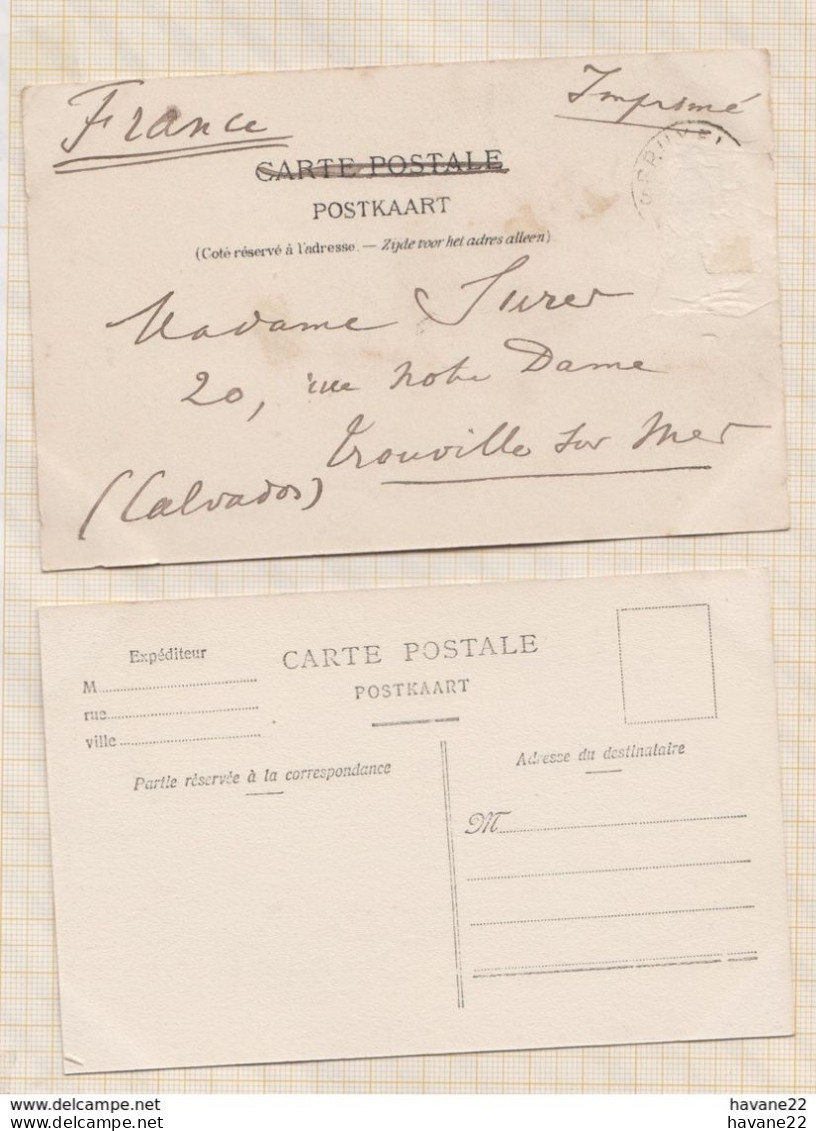 France
Imprimé
CARTE POSTALE
POSTKAART
(Coté réservé à l'adresse. — Zijde voor het adres alleen)
Madame Surer
20, rue Notre Dame
Trouville sur Mer
(Calvados)
Expéditeur
CARTE POSTALE
POSTKAART
M
rue
ville
Partie réservée à la correspondance
Adresse du destinataire
M
https://www.delcampe.net
havane22
https://www.delcampe.net
havane22